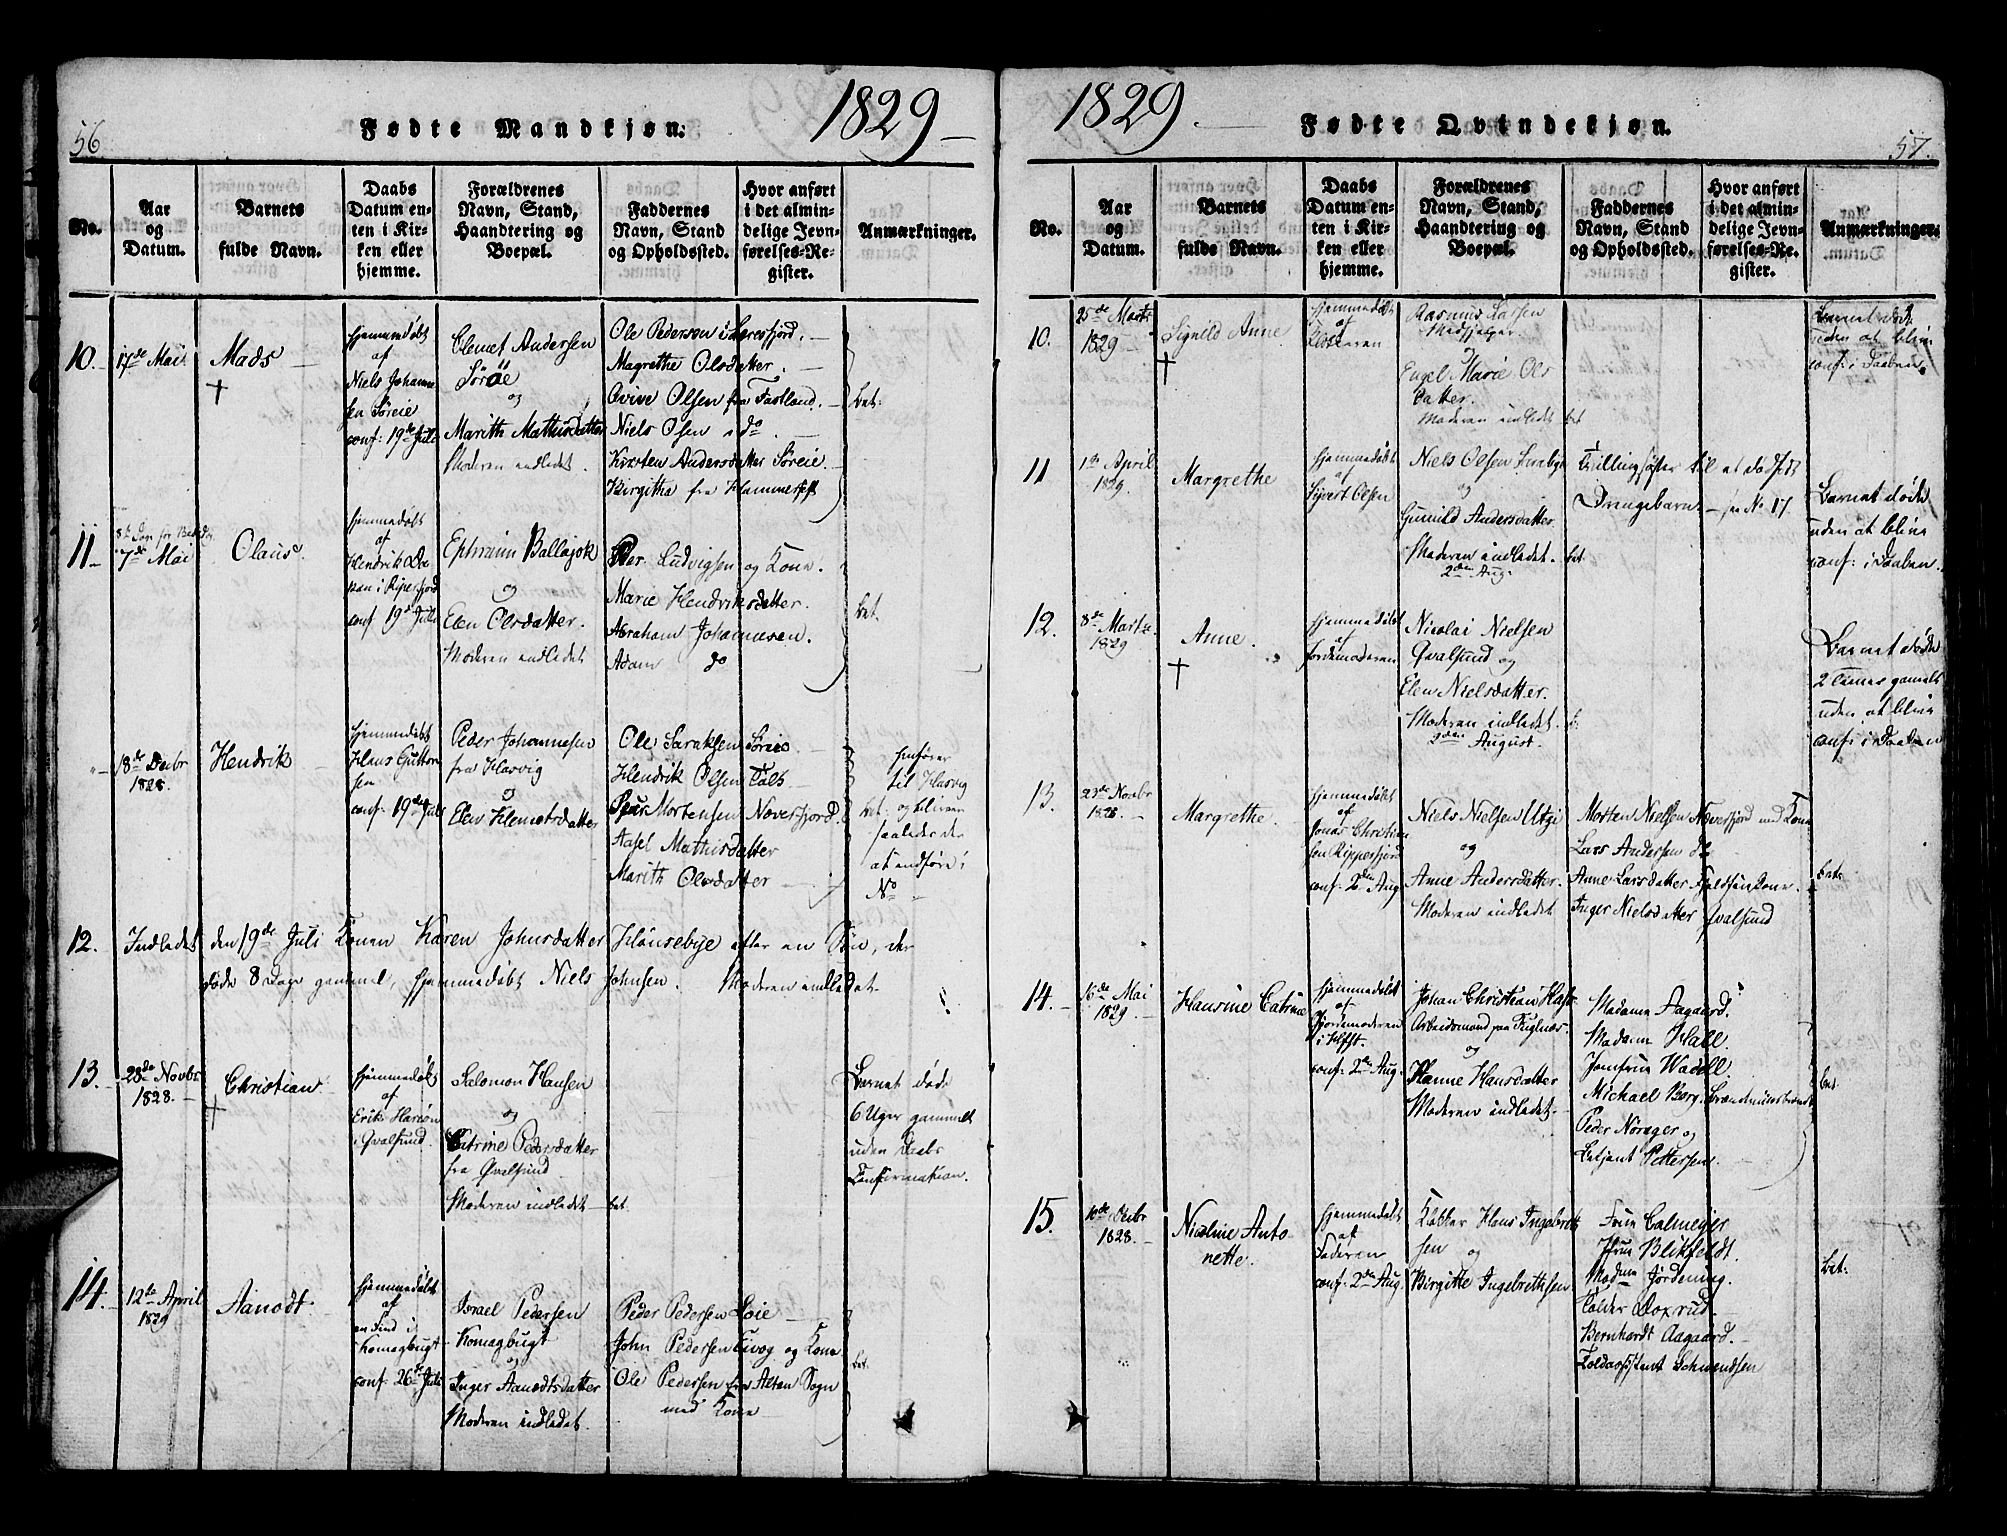 56
Fødte Mandkjøn.
1829
No.
Aar
og
Datum.
Barnets
fulde Navn.
Daabs
Datum en-
ten i Kir-
ken eller
hjemme.
Forældrenes
Navn, Stand,
Haandtering og
Boepæl.
Faddernes
Navn, Stand
og Opholdssted.
Hvor anført
i det almin-
delige Jevn-
førelses-Re-
gister.
Anmærkninger.
10.
17de Mai
Mads
Hjemmedøbt
af
Niels Johanne
sen Søreie
conf: 19de Juli
Clemet Andersen
Sørøe
og
Marith Mathisdatter
Moderen indledet.
Ole Pedersen i
Magrethe Olsdatter.
Olsen fra Fastland.
Niels Olsen i do
Kirsten Andersdatter Søreie
Birgitha fra Hammerfest
bet:
11
7de Mai
Olaus
Hjemmedøbt
af
Hendrik
i Ripefjord
conf 19de Juli
Ephraim Ballajok
og
Elen Olsdatter.
Moderen indledet
Peder Ludvigsen og Kone.
Marie Hendriksdatter.
Abraham Johannesen.
Adam do
bet.
18de Decbr
1828
Hendrik
Hjemmedøbt
Hans Guttorm
sen
conf 19de Juli
Peder Johannesen
fra Hasvig
og
Elen Klemetsdatter
Ole Saraksen Søreie
Hendrik Olsen
Peder Mortensen Noversfjord.
Aasel Mathisdatter
Marith Olsdatter
bet.
henføres
til Hasvig
og bliver
saaledes der
at indføre
No
12.
Indledet den 19de Juli Konen Karen Johnsdatter Hønsebye efter en Søn, der
døde 8 Dage gammel, hjemmedøbt Niels Johnsen. Moderen indledet
13.
28de Novbr
1828.
Christian
Hjemmedøbt
af
Erik
i Qvalsund.
Salomon Hansen
og
Catrine Pedersdatter
fra Qvalsund
Moderen indledet
bet.
Barnet døde
6 Uger gammelt
uden Daabs
Confirmation.
14.
12te April
1829
Aanodt
Hjemmedøbt
af
en Find i
Komagbugt
conf 26de Juli
Israel Pedersen
Komagbugt
og
Inger Aanodtsdatter
Moderen indledet.
Peder Pedersen
John Pedersen og Kone
Ole Pedersen fra Alten Sogn
med Kone
bet.
1829.
Fødte Qvindekjøn.
57.
No.
Aar
og
Datum.
Barnets
fulde Navn.
Daabs
Datum en-
ten i Kir-
ken eller
hjemme.
Forældrenes
Navn, Stand,
Haandtering og
Boepæl.
Faddernes
Navn, Stand
og Opholdssted.
Hvor anført
i det almin-
delige Jevn-
førelses-Re-
gister.
Anmærkninger.
10.
25de Marts
1829
Signild Anne
Hjemmedøbt
af
Rasmus Larsen
og
Engel Marie Ols
datter.
Moderen indledet
bet
Barnet døde
uden at blive
conf: i Daaben.
11
1te April
1829.
Margrethe
Hjemmedøbt
af
Sivert Olsen
Niels Olsen
og
Gunild Andersdatter
Moderen indledet.
2den Aug.
bet.
Tvillingsøster til et dødfødt
Drengebarn se No 17.
Barnet døde
uden at blive
conf: i Daaben.
12.
8de Marts.
1829
Anne.
Hjemmedøbt
af
Jordemoderen
Nicolai Nielsen
Qvalsund og
Elen Nielsdatter.
Moderen indledet.
2den August.
Barnet døde
2 Timer gamelt
uden at blive
conf: i Daaben
13.
23de Novbr
1828.
Margrethe.
Hjemmedøbt
af
Jonas Christian
sen Rippefjord
conf: 2den Aug
Niels Nielsen
og
Anne Andersdatter.
Moderen indledet
Morten Nielsen med Kone
Lars Andersen do
Anne Larsdatter
Inger Nielsdatter Qvalsund
bet.
14.
16de Mai
1829.
Hansine Catrine
Hjemmedøbt
af
Jordemoderen
i Hfst.
conf: 2den Aug.
Johan Christian
Arbeidsmand paa Fuglnæs.
og
Hanne Hansdatter
Moderen indledet
Madame Aagaard.
Madame Hall.
Jomfrue Wadell
Michael Borg
Peder Norager og
Betjent Pettersen.
bet.
15.
10de Decbr
1828.
Nicoline Anto
nette.
Hjemmedøbt
af
Faderen
conf: 2den Aug.
Hans Ingebrett
sen
og
Birgitte Ingebrethsen
Frue Calmeijer
Frue Blikfeldt.
Madme Jordening.
Tolder Doxrud.
Bernhardt Aagaard.
Toldassistent Schwendsen
bet: